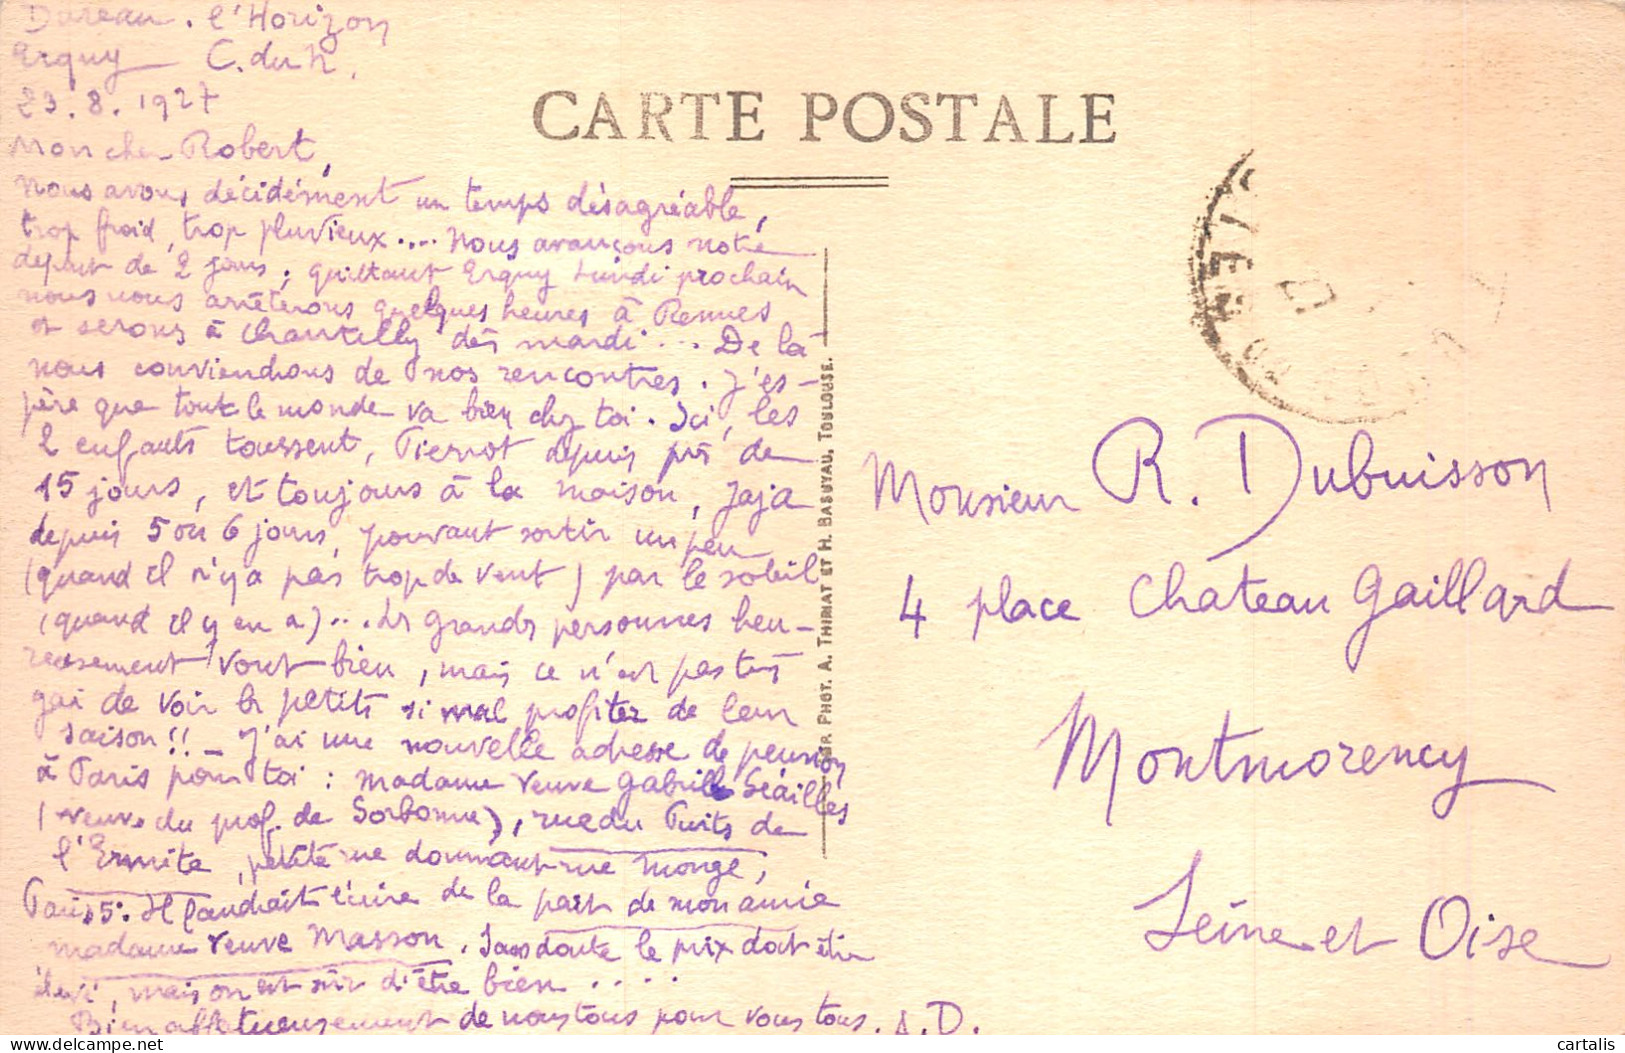 l'Horizon
Erquy C. du N.
23.8.1927
CARTE POSTALE
Mon cher Robert,
Nous avons décidément un temps désagréable,
trop froid, trop pluvieux.... Nous avançons notre
départ de 2 jours; quittant Erquy lundi prochain
nous nous arrêterons quelques heures à Rennes
et serons à Chantilly dès mardi... De là
nous conviendrons de nos rencontres. J'es-
père que tout le monde va bien chez toi. Ici, les
2 enfants toussent, Pierrot depuis près de
15 jours, et toujours à la maison, Jaja
depuis 5 ou 6 jours, pouvant sortir un peu
(quand il n'y a pas trop de vent) par le soleil
(quand il y en a)... Les grandes personnes heu-
reusement vont bien, mais ce n'est pas très
gai de voir les petits si mal profiter de leur
saison!! - J'ai une nouvelle adresse de pension
à Paris pour toi : Madame veuve Gabriel Séailles
(veuve du prof. de Sorbonne), rue du Puits de
l'Ermite, petite rue donnant rue Monge,
Paris 5e. Il faudrait écrire de la part de mon amie
madame veuve Masson. Sans doute le prix doit être
élevé, mais on est sûr d'être bien....
Bien affectueusement de nous tous pour vous tous. A.D.
PHOT. A. THIRIAT ET H. BASUYAU, TOULOUSE.
Monsieur R. Dubuisson
4 place Château Gaillard
Montmorency
Seine et Oise
cartalis